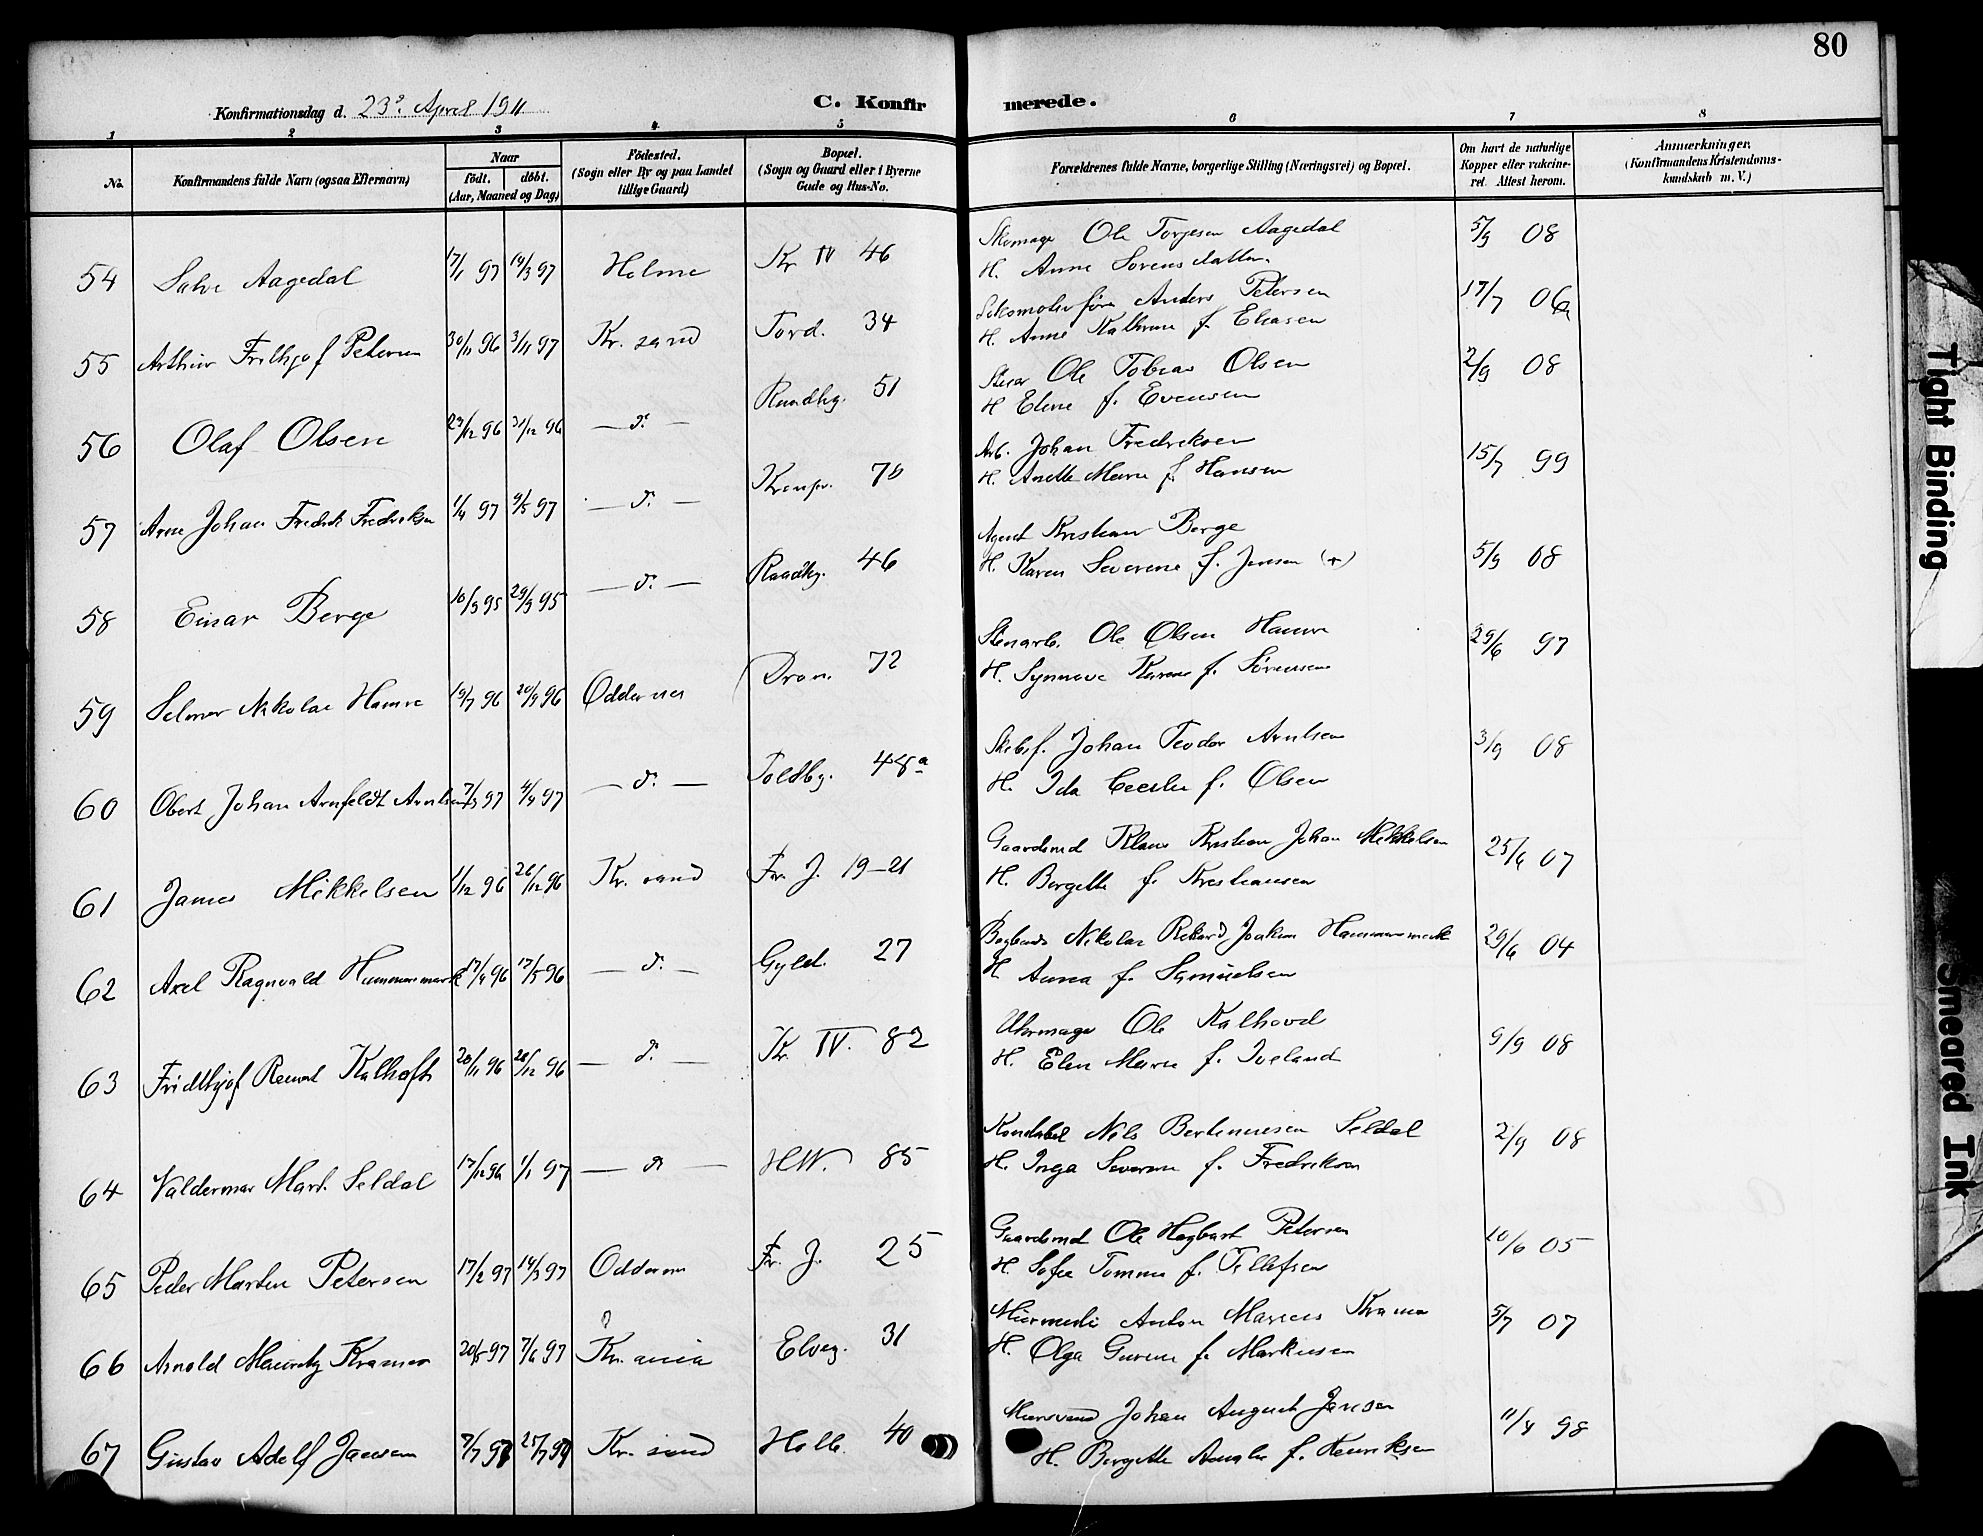 80
Konfirmationsdag d. 23de April 1911
C. Konfir merede.
1 2 3 4 5 6 7 8
No.
Konfirmandens fulde Navn (ogsaa Efternavn)
Naar
födt. döbt.
(Aar, Maaned og Dag)
Födested.
(Sogn eller By og paa Landet
tillige Gaard)
Bopæl.
(Sogn og Gaard eller i Byerne
Gade og Hus-No.
Forældrenes fulde Navne, borgerlige Stilling (Næringsvei) og Bopæl.
Om havt de naturlige
Kopper eller vakcine-
ret. Attest herom.
Anmærkninger.
(Konfirmandens Kristendoms-
kundskab m. V.)
54 Salve Aagedal 17/1 97 14/3 97 Holme Kr. IV 46 Skomager Ole Torgesen Aagedal 5/9 08
H. Anne Sorensdatter
55 Arthur Frithjof Petersen 30/11 96 Kr. sand Tord. 34 Lokomotivfører Anders Petersen 17/7 06
H. Anne Kathrine f. Eliasen
56 Olaf Olsen 31/12 96 — d. — Raadhg. 51 Ole Tobias Olsen 2/9 08
H. Eline f. Evensen
57 Arne Johan Fredrik Fredriksen 1/4 97 9/5 97 — d. — Kronpr. 70 Arb. Johan Fredriksen 15/7 99
H. Anette Marie f. Hansen
58 Einar Berge 10/3 95 29/9 95 — d. — Raadhg. 46 Agent Kristian Berge 5/9 08
H. Karen Severine f. Jensen (+)
59 Selmer Nikolai Hamre 19/7 96 20/9 96 Oddernes Dron. 72 Stenarb. Ole Olsen Hamre 29/6 97
H. Synnove Karine f. Sørensen
60 Obert Johan Arnfeldt Arntsen 7/3 97 4/4 97 — d. — Toldbg. 48a Skibsf. Johan Teodor Arntsen 3/9 08
H. Ida Cecilie f. Olsen
61 James Mikkelsen 11/12 96 26/12 96 Kr. sand Fr. J. 19-21 Gaardsmd Klaus Kristian Johan Mikkelsen 25/6 07
H. Bergitte f. Kristiansen
62 Axel Ragnvald Hammersmark 17/4 96 17/5 96 — d. — Gyld. 27 Nikolai Rikard Joakim Hammersmark 29/6 04
H. Anna f. Samuelsen
63 Fridthjof Reinert Kalhoft 20/11 96 26/12 96 — d. — Kr. IV. 82 Uhrmager Ole Kalhovd 9/9 08
H. Elen Marie f. Iveland
64 Valdermar Mart. Seldal 17/12 96 1/1 97 — d — H.W. 85 Konstabel Nils Bertinussen Seldal 2/9 08
H. Inga Severine f. Fredriksen
65 Peder Martin Petersen 17/2 97 14/3 97 Oddernes Fr. J. 25 Gaardsmd Ole Hagbart Petersen 10/6 05
H. Sofie Tomine f. Tellefsen
66 Arnold Mauritz Kramer 20/5 97 7/6 97 Kr. ania Elveg. 31 Murmester Anton Marius Kramer 5/7 07
H. Olga Gurine f. Markussen
67 Gustav Adolf Jansen 7/7 97 Kr. sand Holb. 40 Murersvend Johan August Jansen 11/4 98
H. Bergitte Amalie f. Henriksen
Tight Binding
Smeared Ink